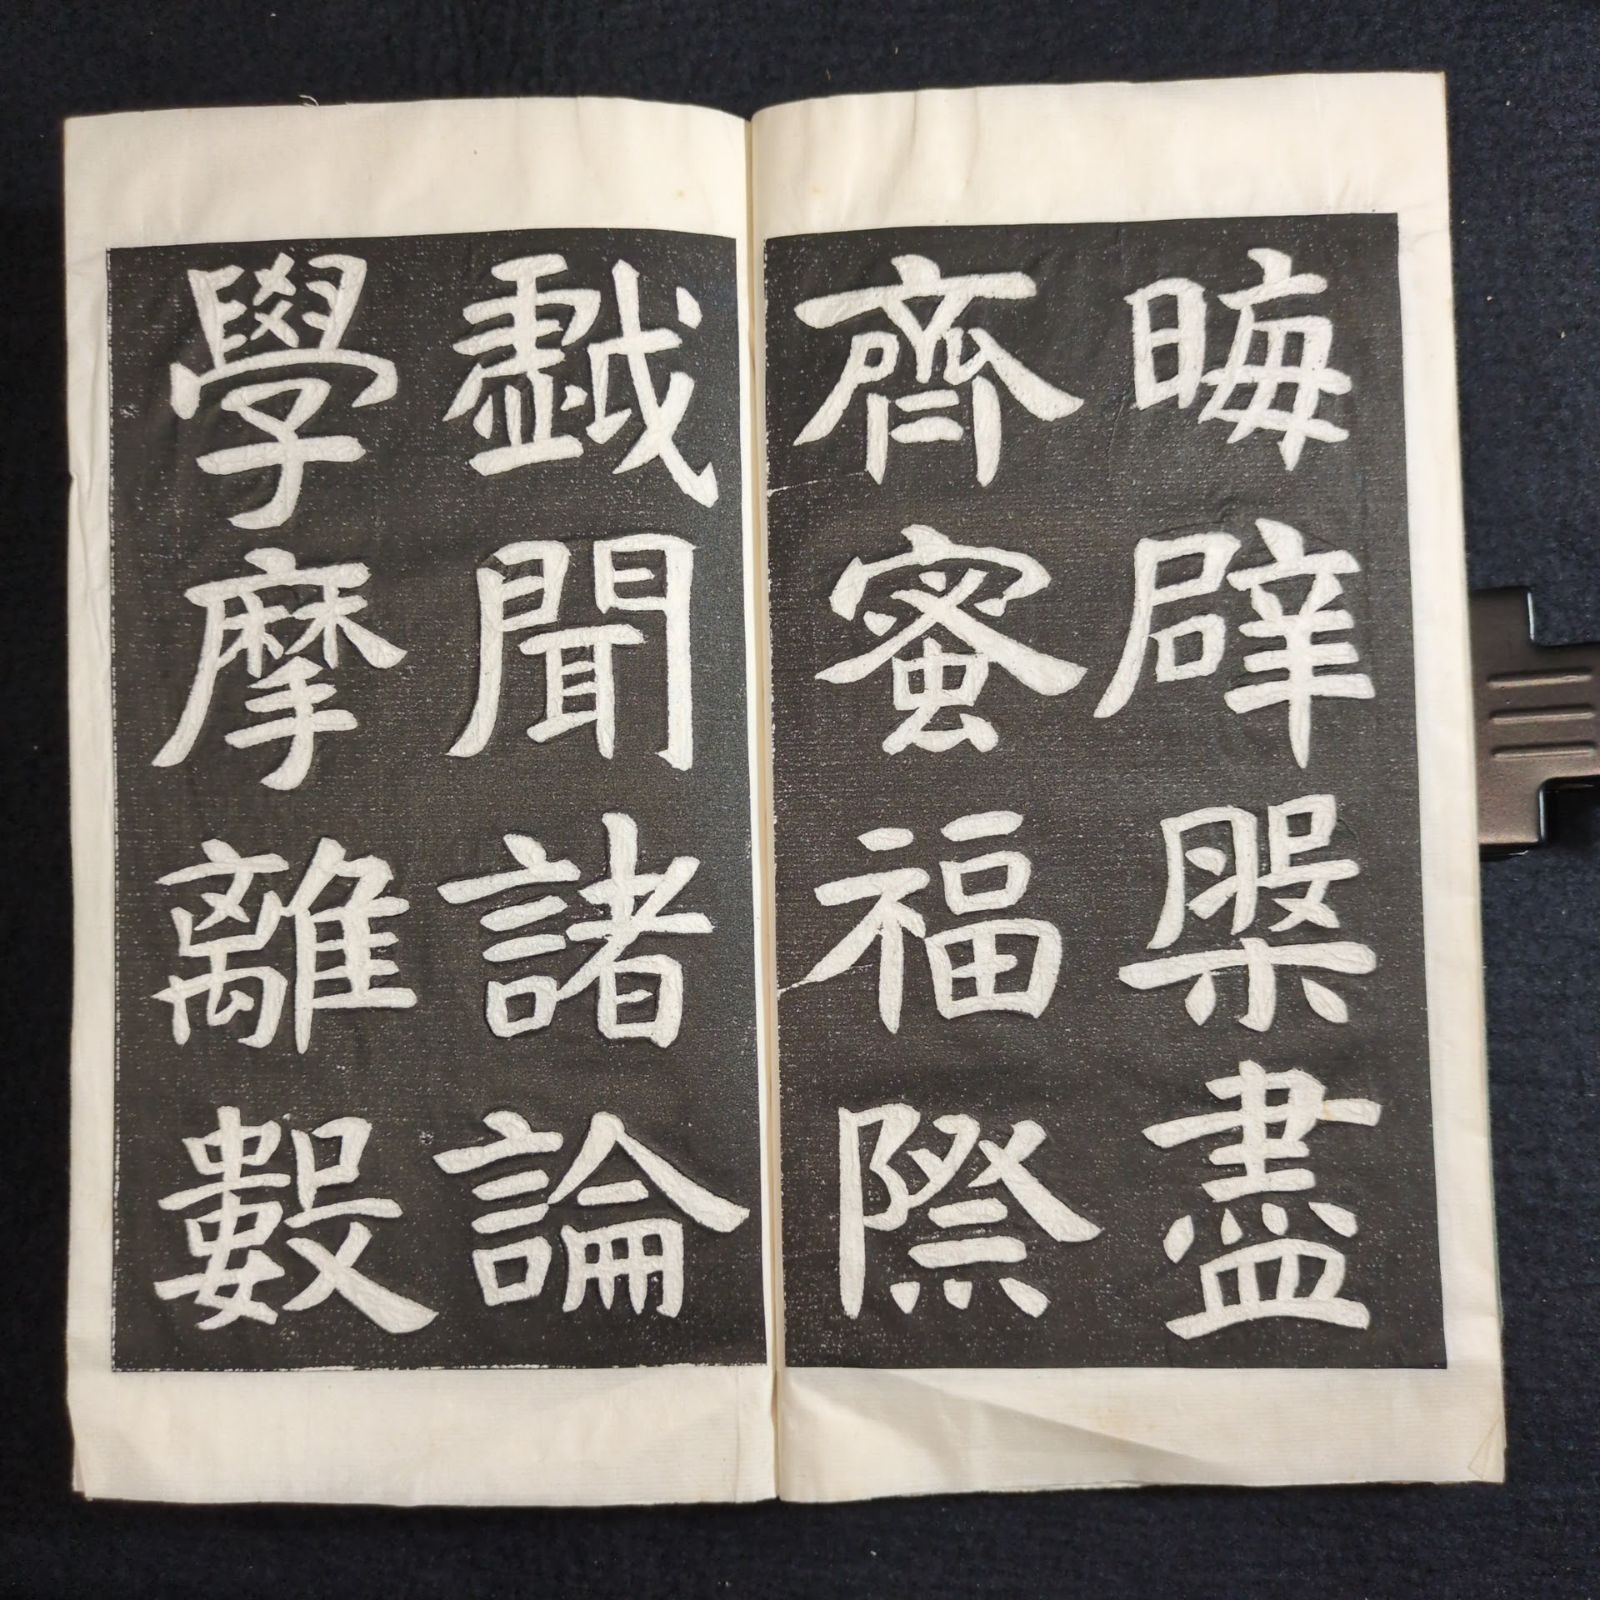 晦辟槃盡
齊蜜福際
戯聞諸論
學摩離數